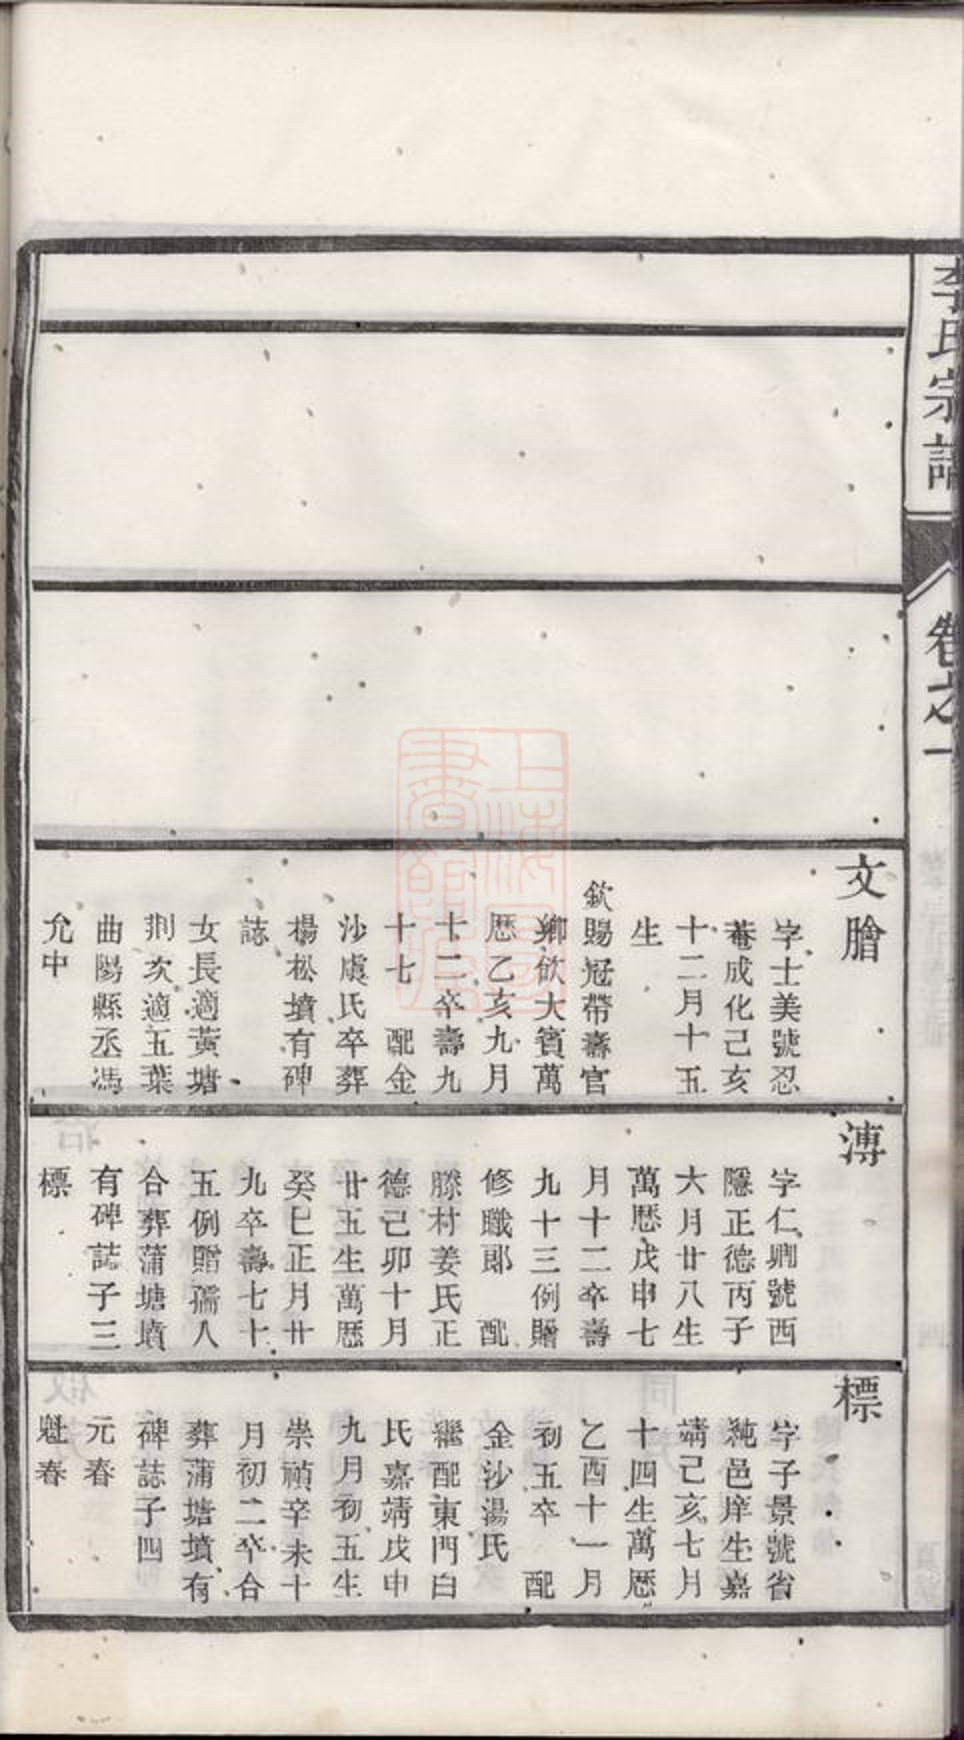 李氏宗譜
卷之一
文膾
字士美號忍
菴成化己亥
十二月十五
生
欽賜冠帶壽官
鄉飲大賓萬
歷乙亥九月
十二卒壽九
十七 配金
沙虞氏卒葬
楊松墳有碑
誌
女長適黃塘
荆次適五葉
曲陽縣丞馮
允中
漙
字仁卿號西
隱正德丙子
六月廿八生
萬歷戊申七
月十二卒壽
九十三例贈
修職郎 配
滕村姜氏正
德己卯十月
廿五生萬歷
癸巳正月廿
九卒壽七十
五例贈孺人
合葬蒲塘墳
有碑誌子三
標
標
字子景號省
純邑庠生嘉
靖己亥七月
十四生萬歷
乙酉十一月
初五卒 配
金沙湯氏
繼配東門白
氏嘉靖戊申
九月初五生
崇禎辛未十
月初二卒合
葬蒲塘墳有
碑誌子四
元春
魁春
上海圖書館藏